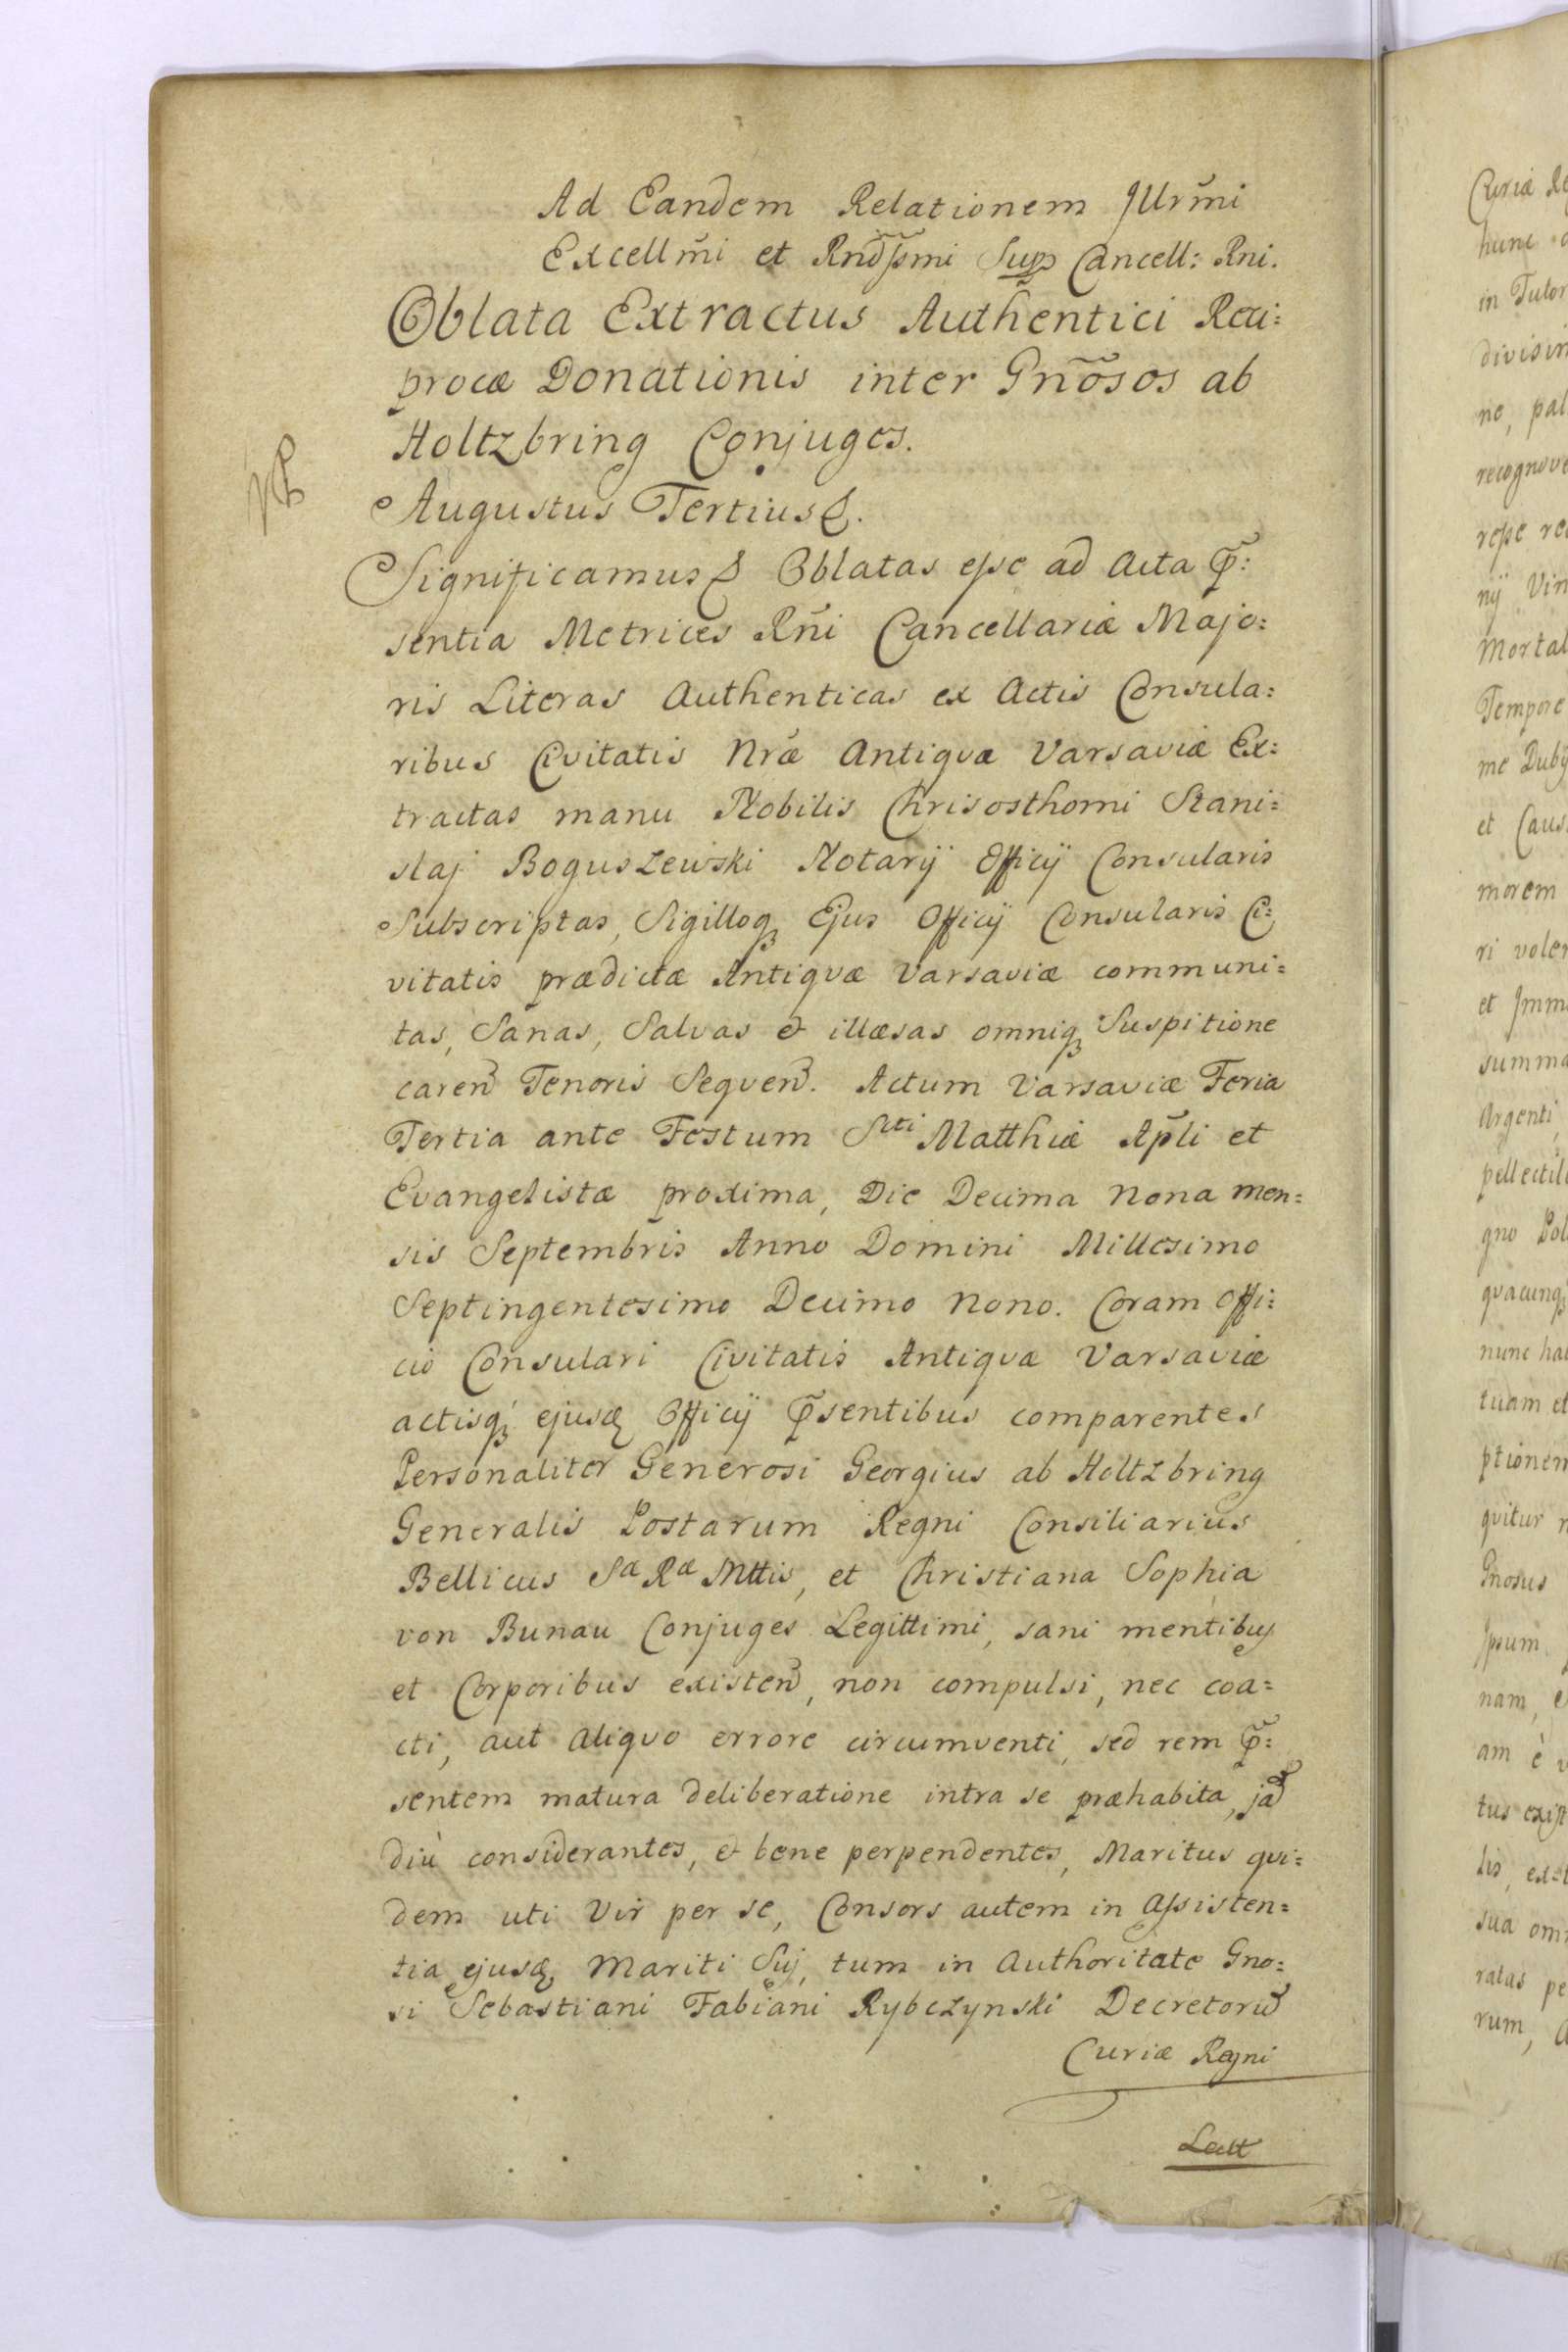 Ad Eandem Relationem Jllrm̃i
Excellm̃i et Rnd̃ssmi Sup Cancell: Rni.
Oblata Extractus Authentici Reci:
procæ Donationis inter Gñosos ab
Holtzbring Conjuges.
NB
Augustus Tertius &.
Significamus & Oblatas esse ad Acta p̃:
sentia Metrices Rñi Cancellariæ Majo:
ris Literas Authenticas ex Actis Consula:
ribus Civitatis Nræ Antiquæ Varsaviæ Ex:
tractas manu Nobilis Chrisosthomi Stani:
slaj Boguszewski Notarÿ Officÿ Consularis
Subscriptas, Sigilloq3 Ejus Officÿ Consularis Ci:
vitatis prædictæ Antiquæ Varsaviæ communi:
tas, Sanas, Salvas & illæsas omniq3 Suspitione
careñ Tenoris Sequeñ. Actum Varsaviæ Feria
Tertia ante Festum Scti Matthiæ Ap̃li et
Evangelistæ proxima, Die Decima Nona men:
sis Septembris Anno Domini Millesimo
Septingentesimo Decimo Nono. Coram Offi:
cio Consulari Civitatis Antiquæ Varsaviæ
actisq3 ejusd Officÿ p̃sentibus comparentes
Personaliter Generosi Georgius ab Holtzbring
Generalis Postarum Regni Consiliarius
Bellicus Sæ Ræ Mttis, et Christiana Sophia
von Bunau Conjuges Legittimi, sani mentibus
et Corporibus existeñ, non compulsi, nec coa:
cti, aut aliquo errore circumventi, sed rem p̃:
sentem matura deliberatione intra se præhabita, jã
diù considerantes, & bene perpendentes, Maritus qui:
dem uti Vir per se, Consors autem in Assisten:
tia ejusd Mariti Sui, tum in Authoritate Gno:
si Sebastiani Fabiani Rybczynski Decretorũ
Curiæ Regni